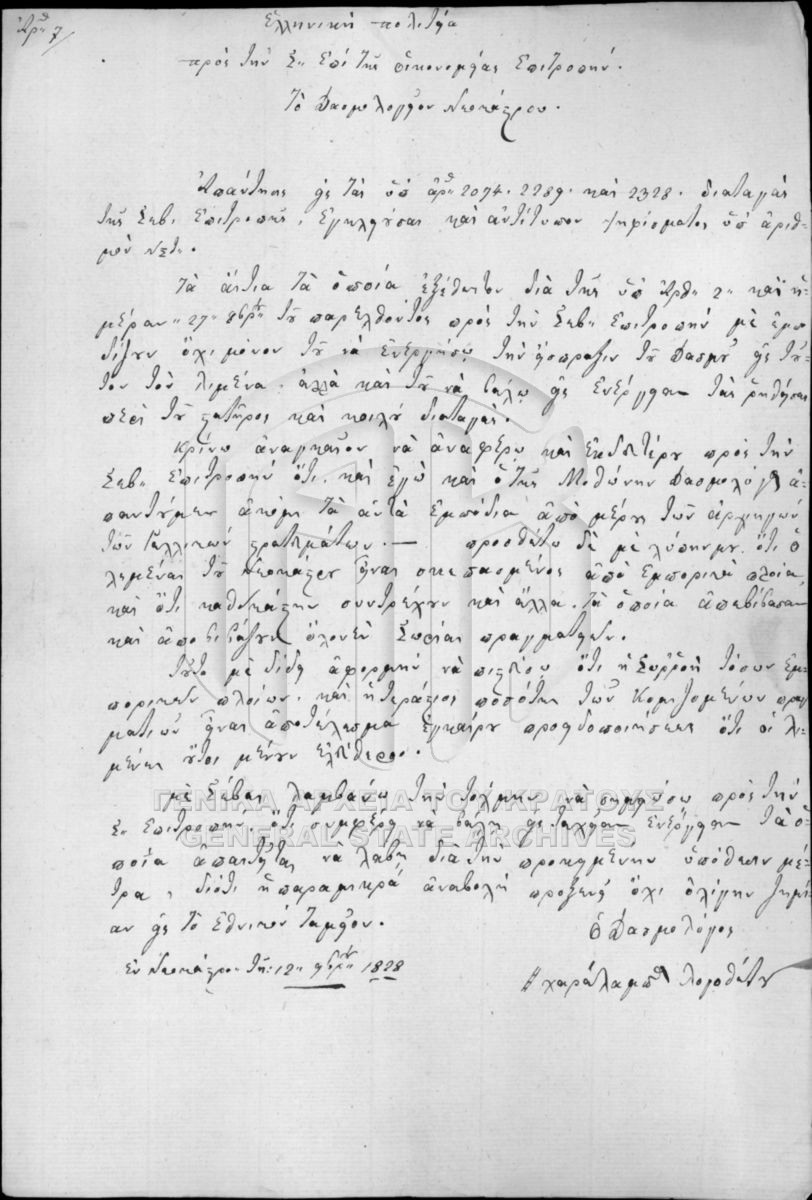 Ἀρθ. 7
Ἑλληνικὴ πολιτεία
πρὸς τὴν Σ. Ἐπὶ τῆς οἰκονομίας Ἐπιτροπήν.
Τὸ Δασμολογεῖον Νεοκάστρου.
Ἀπάντησις εἰς τὰς ὑπ' ἀρθ. 2074. 2289. καὶ 2328. διαταγὰς
τῆς Σεβ. Ἐπιτροπῆς, ἐγκλειούσας καὶ ἀντίτυπον ψηφίσματος ὑπ' ἀριθ-
μὸν
Τὰ αἴτια τὰ ὁποῖα ἐξέθεττον διὰ τῆς ὑπ' Ἀρθ. 2 καὶ ἡ-
μέραν 27 8βρίου τοῦ παρελθόντος πρὸς τὴν Σεβ. Ἐπιτροπὴν μὲ ἐμπο
δίζουν ὄχι μόνον τοῦ νὰ ἐνεργήσω τὴν εἴσπραξιν τοῦ Δασμοῦ εἰς τοῦ-
τον τὸν λιμένα. ἀλλὰ καὶ τοῦ νὰ βάλω εἰς ἐνέργειαν τὰς ῥηθείσας
περὶ τοῦ στατῆρος καὶ κοιλοῦ διαταγάς.
Κρίνω ἀναγκαῖον νὰ ἀναφέρω καὶ ἐκ δευτέρου πρὸς τὴν
Σεβ. Ἐπιτροπὴν ὅτι. καὶ ἐγὼ καὶ ὁ τῆς Μοθώνης Δασμολόγος ἀ-
παντοῦμεν ἀκόμη τὰ αὐτὰ ἐμπόδια ἀπὸ μέρους τῶν ἀρχηγῶν
τῶν Γαλλικῶν στρατευμάτων. — προσθέτω δὲ μὲ λύπην μου ὅτι ὁ
λεμένας τοῦ Νεοκάστρου εἶναι σκεπασμένος ἀπὸ ἐμπορικὰ πλοῖα,
καὶ ὅτι καθ' ἑκάστην συντρέχουν καὶ ἄλλα. τὰ ὁποῖα ἀπεβίβασαν
καὶ ἀποβιβάζουν ὁλονὲν σωρείας πραγματειῶν.
Τοῦτο μὲ δίδει ἀφορμὴν νὰ πιστεύσω ὅτι ἡ συρροὴ τόσων ἐμ-
πορικῶν πλοίων. καὶ ἡ τεράστιος ποσότης τῶν κομιζομένων πραγ
ματιῶν εἶναι ἀποτέλεσμα ἐγκαίρου προειδοποιήσεως ὅτι οἱ λι-
μένες οὗτοι μένουν ἐλεύθεροι.
Μὲ σέβας λαμβάνω τὴν τόλμην νὰ σημειώσω πρὸς τὴν
Σ. Ἐπιτροπὴν ὅτι συμφέρει νὰ βάλῃ εἰς ταχεῖαν ἐνέργειαν τὰ ὁ-
ποῖα ἀπαιτεῖται νὰ λάβῃ διὰ τὴν προκειμένην ὑπόθεσιν μέ-
τρα, διότι ἡ παραμικρὰ ἀναβολὴ προξενεῖ ὄχι ὀλίγην ζημί-
αν εἰς τὸ Ἐθνικὸν Ταμεῖον.
Ὁ Δασμολόγος
Ἐν Νεοκάστρῳ τῇ: 12 9βρίου 1828
χαράλαμπος Λογοθέτου
ΓΕΝΙΚΑ ΑΡΧΕΙΑ ΤΟΥ ΚΡΑΤΟΥΣ
GENERAL STATE ARCHIVES